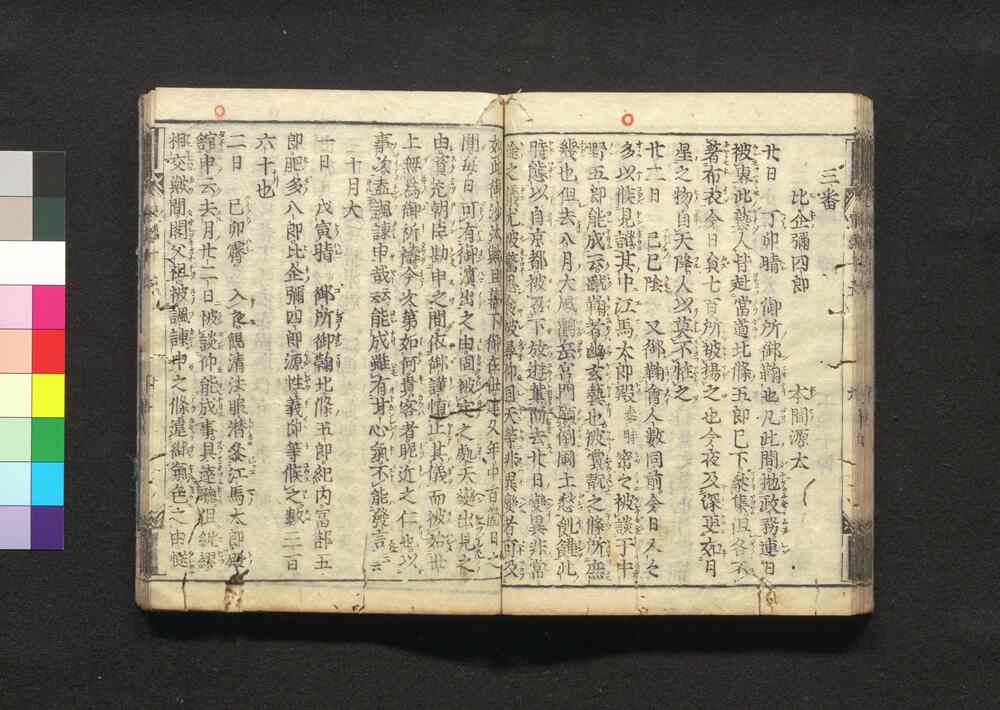 三番
比企彌四郎 本間源太
廿日 丁卯晴 御所御鞠也凡此間抛政務連日
被專此藝人皆赴當道北條五郎已下參集但各不
著布衣今日員七百所被揚之也今夜及深更如月
星之物自天降人以莫不怪之
廿二日 己巳陰 又御鞠會人數同前今日又々
多以候見證其中江馬太郎殿泰時密々被談于中
野五郎能成云蹴鞠者幽玄藝也被賞翫之條所庶
幾也但去八月大風鶴岳宮門顛倒國土愁飢饉此
時態以自京都被召下放遊輩而去廿日變異非常
途之儀尤被驚思食被尋仰司天等非異變者可及
如此御沙汰歟且幕下御在世建久年中百箇日之
間毎日可有御濱出之由固被定之處天變出見之
由資元朝臣勘申之間依御謹愼止其儀而被始世
上無爲御祈禱今次第如何貴客者昵近之仁也以
事次盍諷諫申哉云云能成雖有甘心氣不能發言云云
十月大
一日 戊寅晴 御所御鞠北條五郎紀内富部五
郎肥多八郎比企彌四郎源性義印等候之數二百
六十也
二日 己卯霽 入夜親清法眼潛參江馬太郎殿
舘申云去月廿二日被談仰能成事具達聽粗
相交歟閣父祖被諷諫申之條違御氣色之由